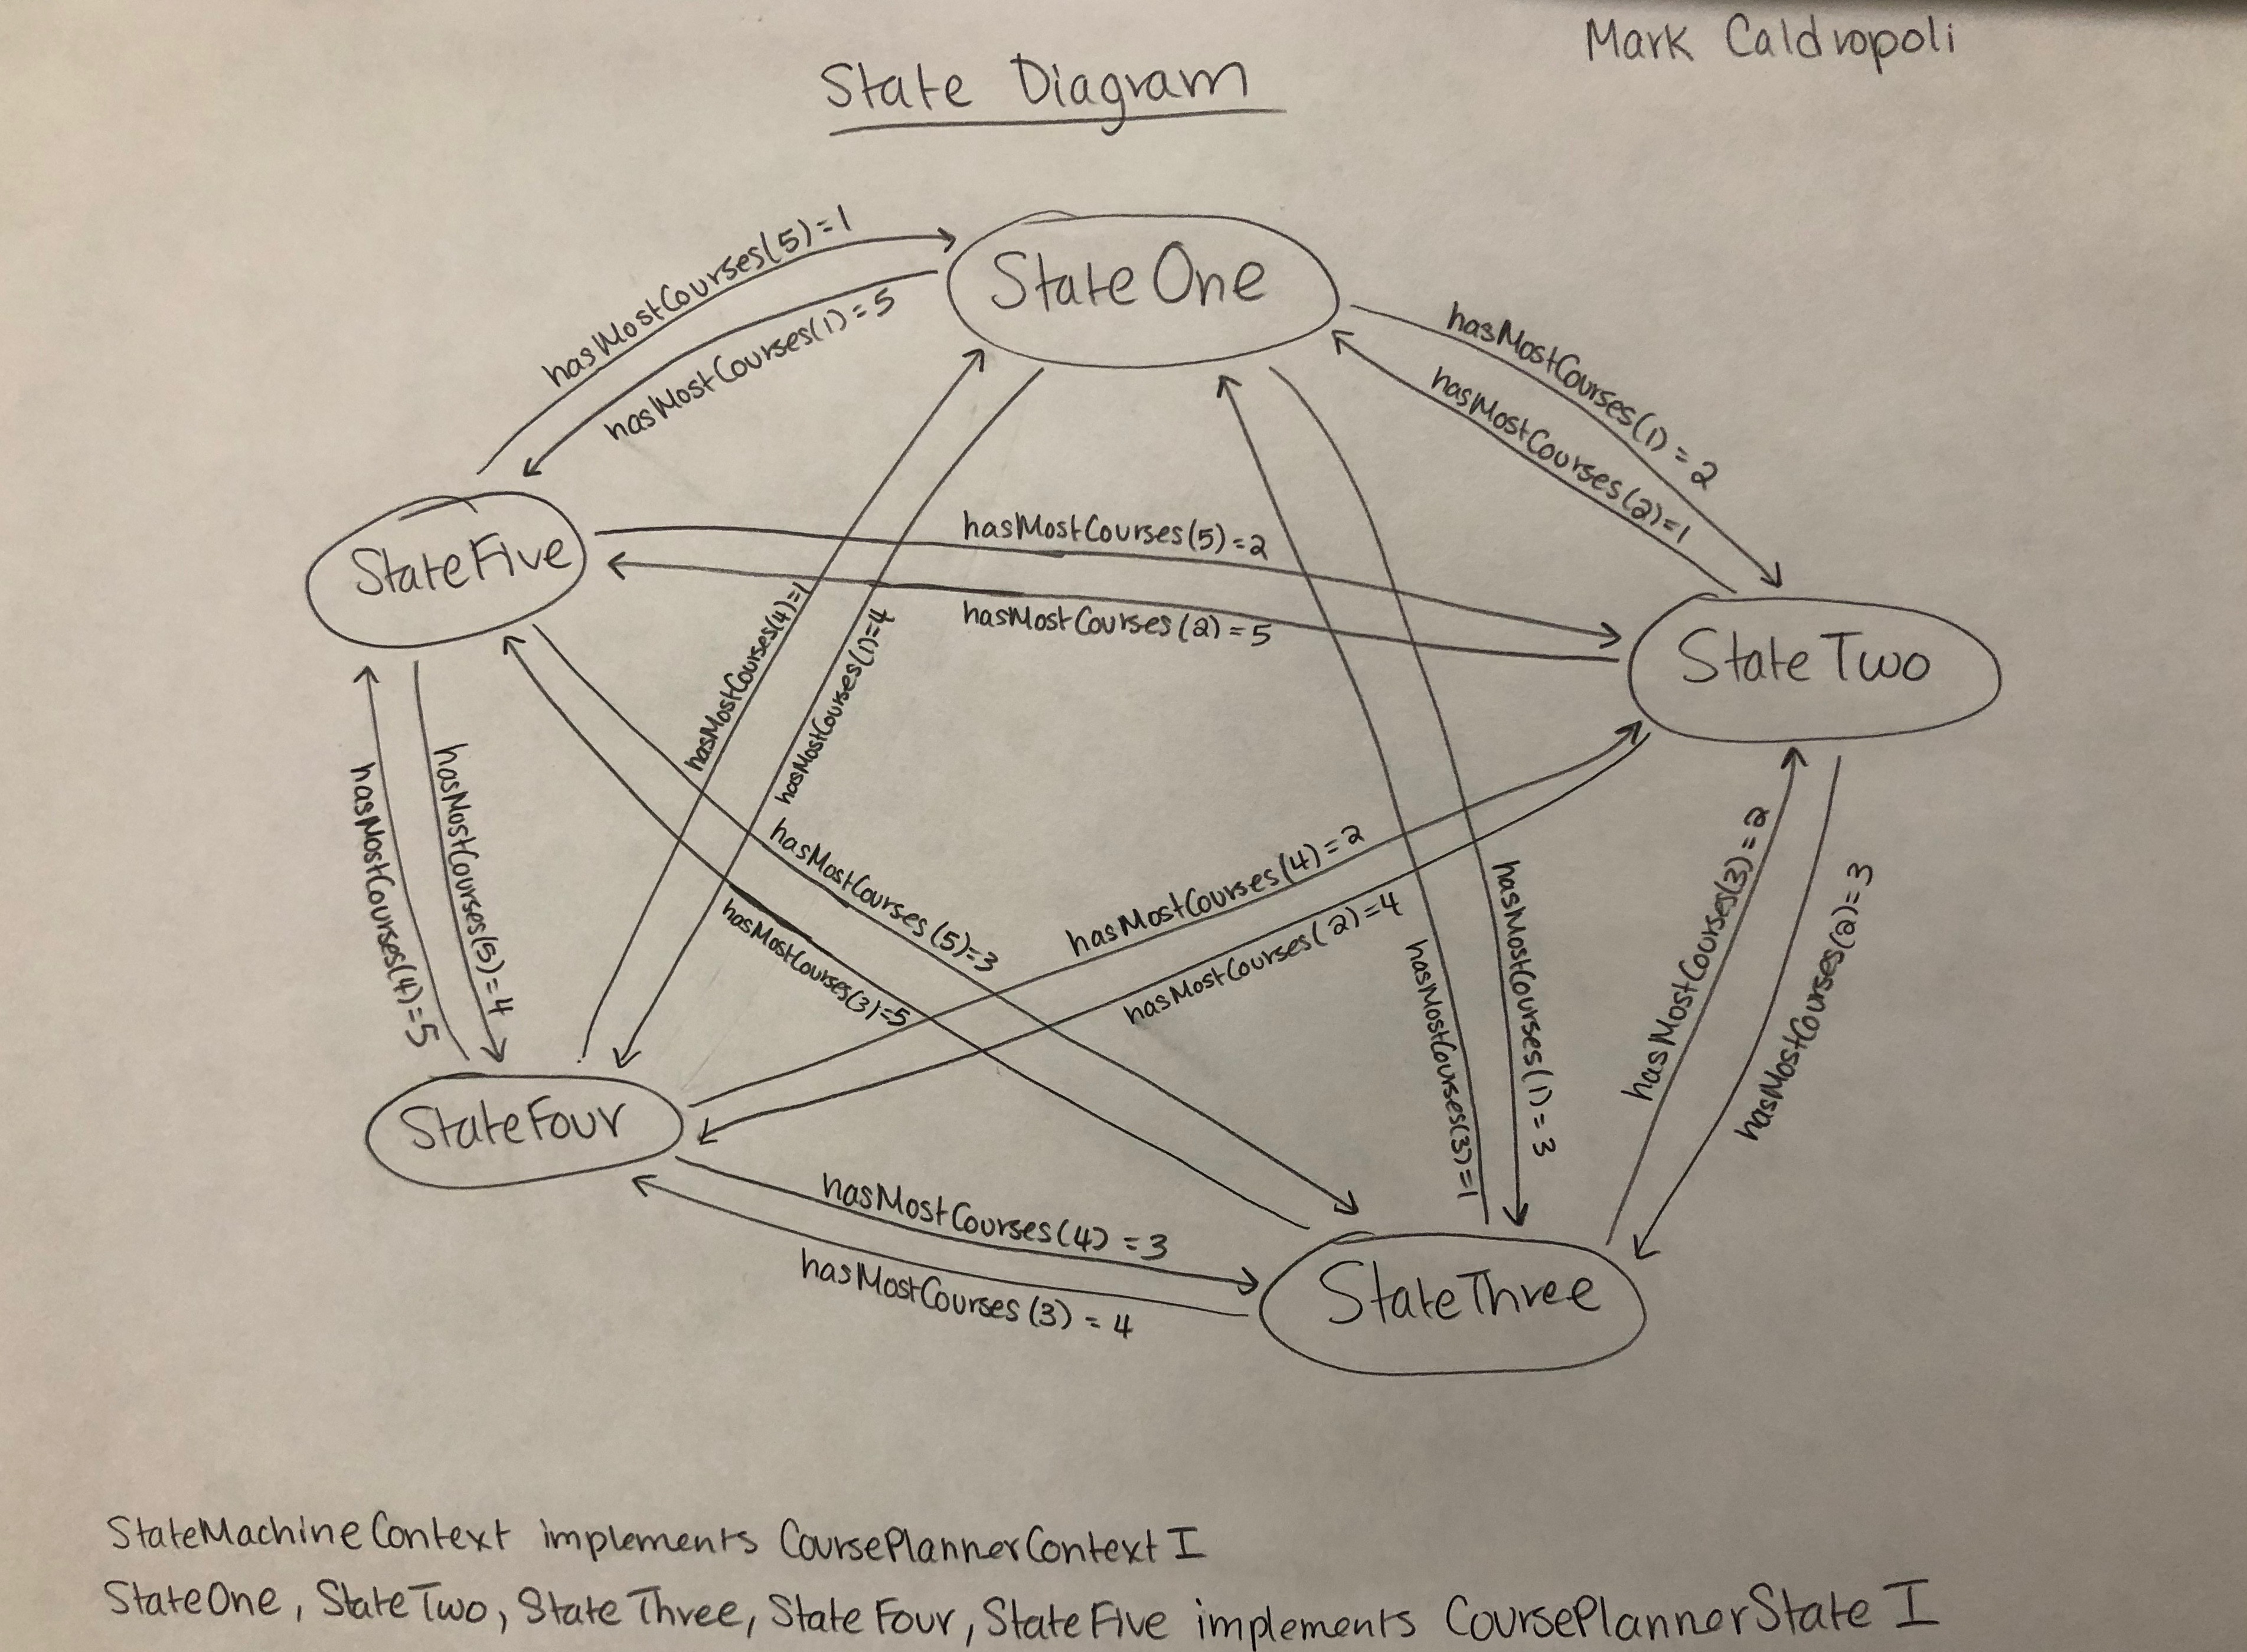 Mark Caldropoli
State Diagram
hasMostCourses(5)=1
StateOne
hasMostCourses(1)=5
hasMostCourses(1)=2
hasMostCourses(2)=1
StateFive
hasMostCourses(5)=2
hasMostCourses(2)=5
hasMostCourses(4)=1
hasMostCourses(1)=4
StateTwo
hasMostCourses(4)=5
hasMostCourses(5)=4
hasMostCourses(5)=3
hasMostCourses(3)=5
hasMostCourses(4)=2
hasMostCourses(2)=4
hasMostCourses(3)=1
hasMostCourses(1)=3
hasMostCourses(3)=2
hasMostCourses(2)=3
StateFour
hasMostCourses(4)=3
hasMostCourses(3)=4
StateThree
StateMachineContext implements CoursePlannerContextI
StateOne, StateTwo, StateThree, StateFour, StateFive implements CoursePlannerStateI